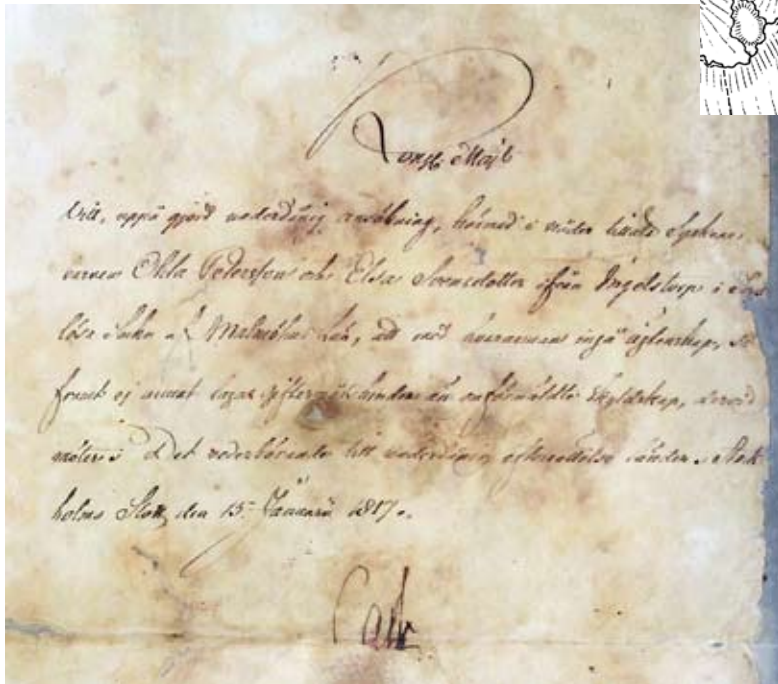 Kongl. Maj:t
Vill, uppå gjord underdånig ansökning, härmed i nåder tillåta Syskone
barnen Ohla Pederson och Elsa Svensdotter ifrån Ingelstorp i
lösa Sokn af Malmöhus Län, att med hvarannan ingå ägtenskap, så
framt ej annat laga giftermåls hinder än omförmäldte Skyldskap, derwid
möter; Det vederbörande till underdånig efterrättelse länder. Stock
holms Slott den 15 Januarii 1817.
Carl